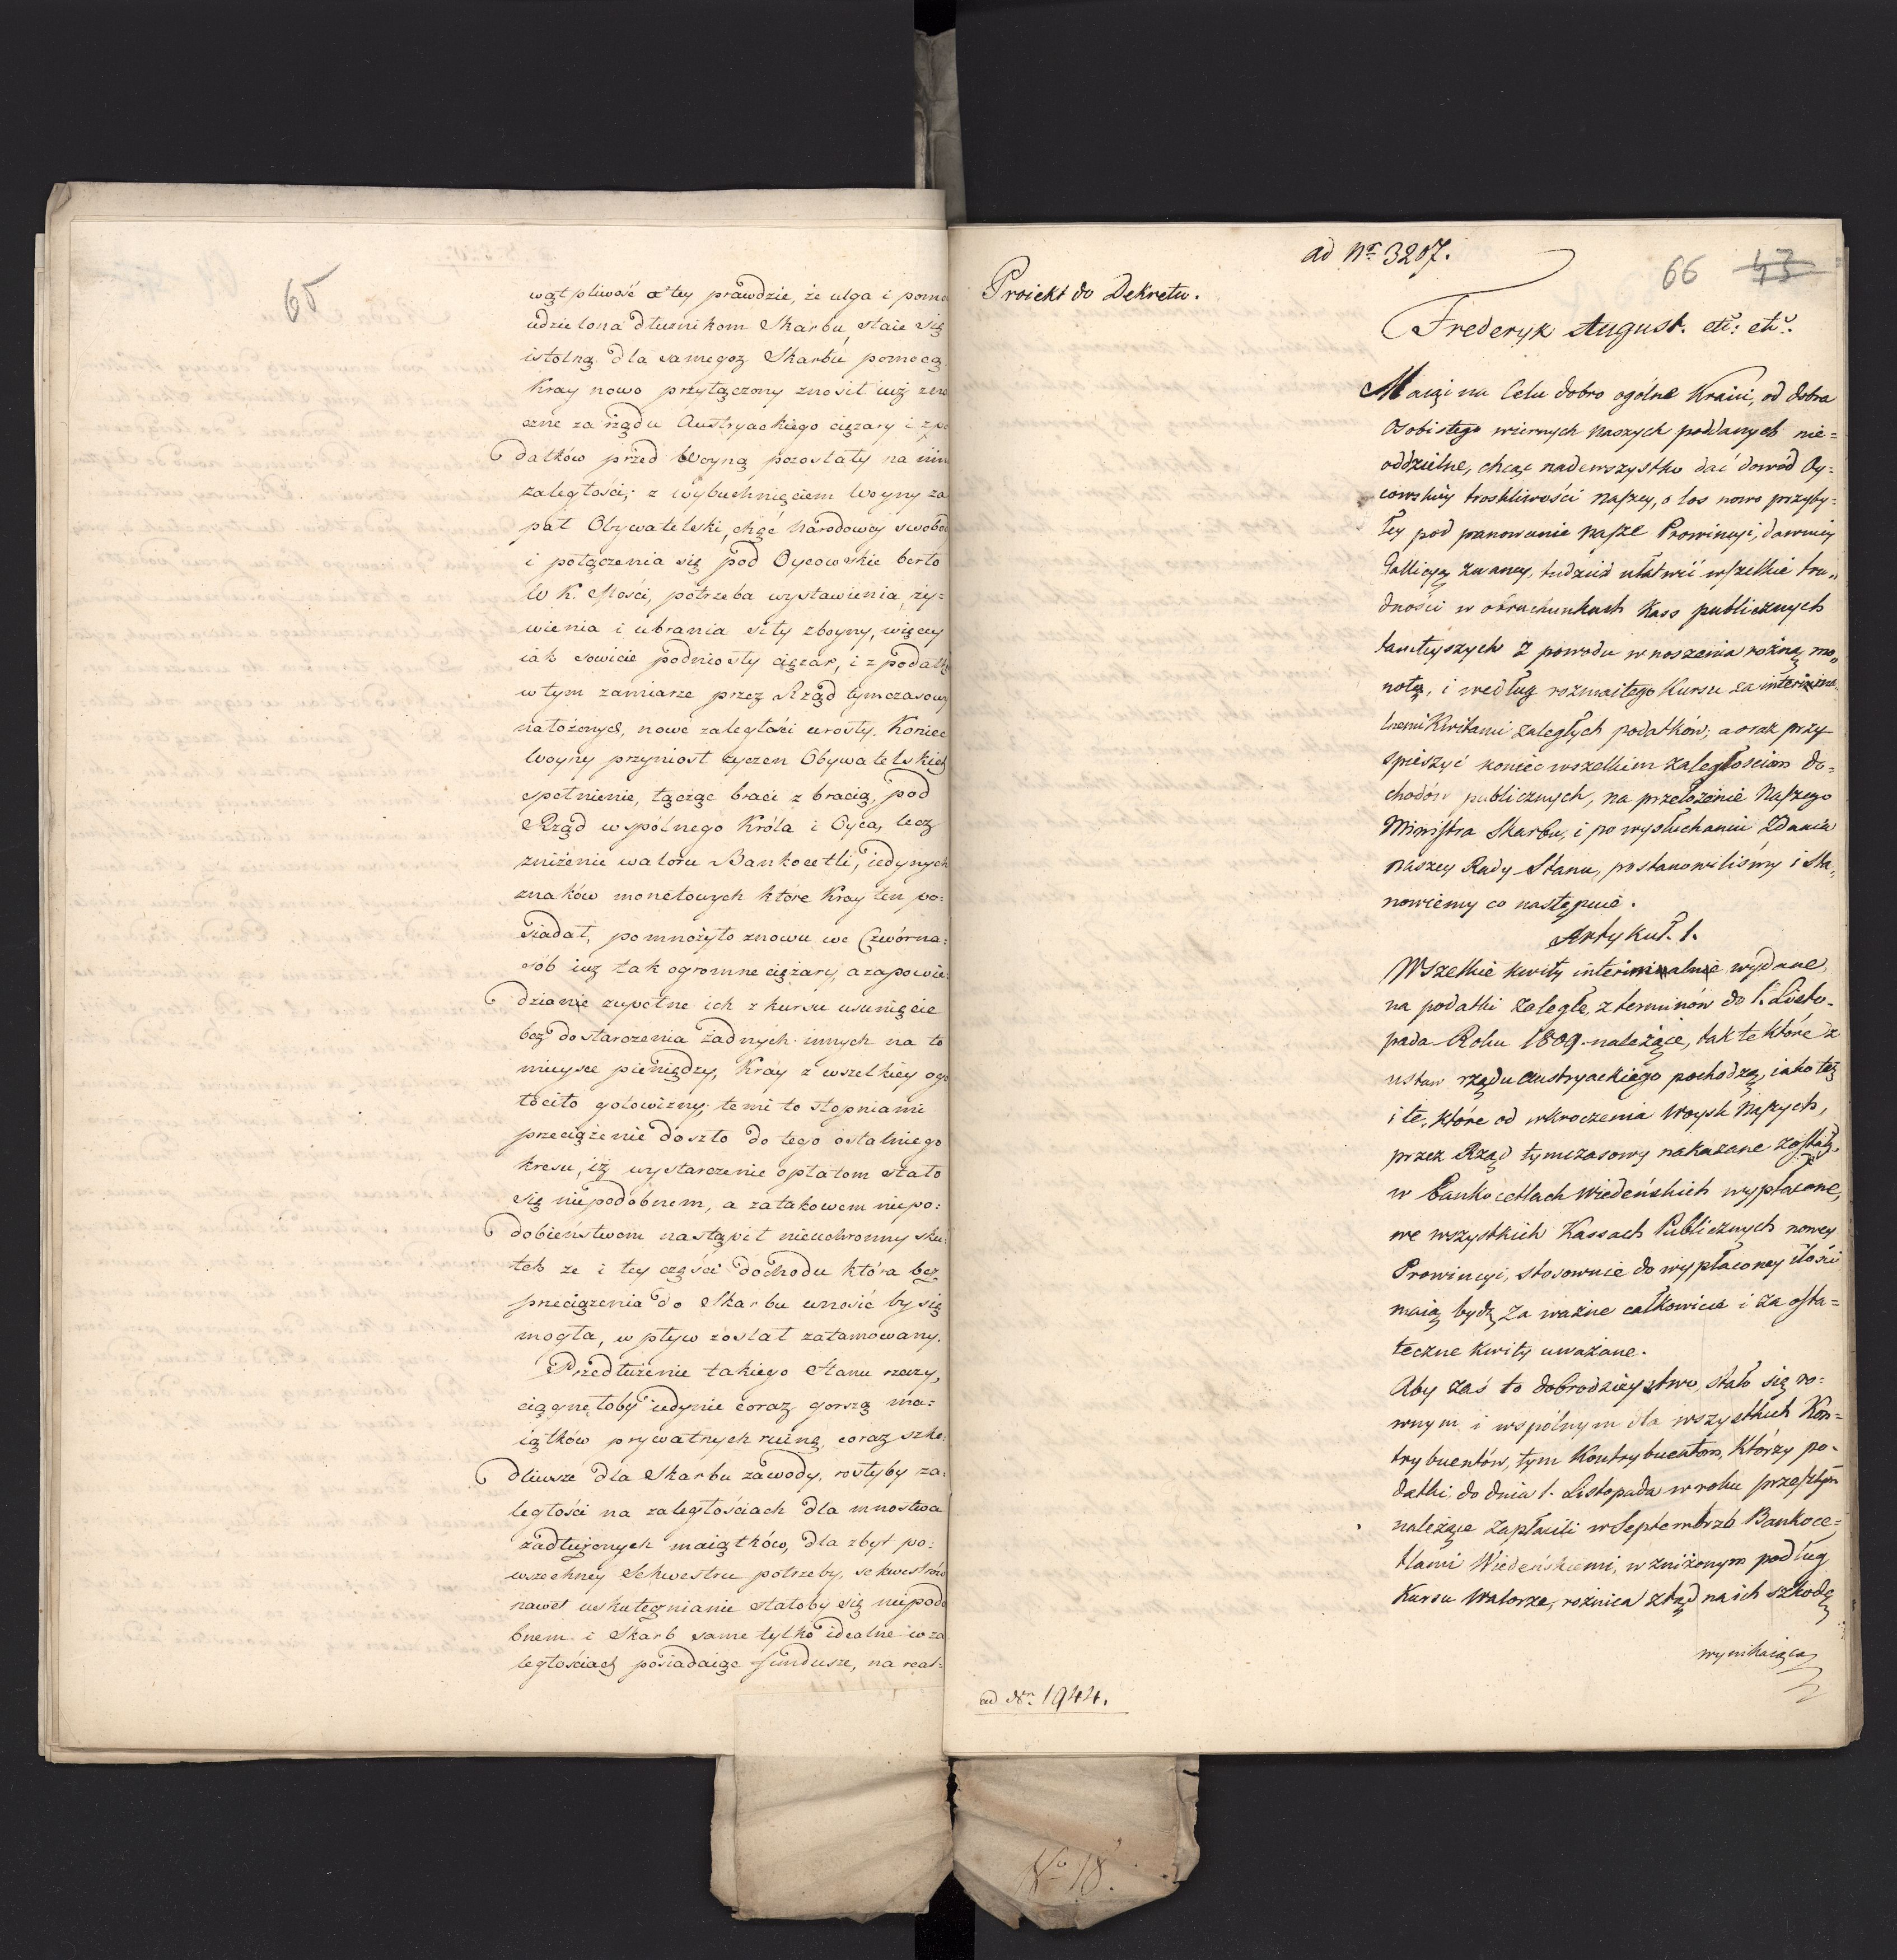 65
wątpliwość o tey prawdzie, że ulga i pomo
udzielona dłużnikom Skarbu staie się
istotną dla samegoż Skarbu pomocą
Kray nowo przyłączony znosił iuż zna
czne za rządu Austryackiego ciężary i z po
datków przed Woyną pozostały na nim
zaległości; z wybuchnięciem Woyny za
pał Obywatelski, chęć Narodowey swobod
i połączenia się pod Oycowskie berło
W. K. Mości, potrzeba wystawienia, ży=
wienia i ubrania siły zbroyny, więcey
iak sowicie podniosły ciężar, i z podatk
w tym zamiarze przez Rząd tymczasowy
nałożonych, nowe zaległości urosły. Koniec
Woyny przyniósł życzeń Obywatelskich
spełnienie, łącząc braci z bracią, pod
Rząd wspólnego Króla i Oyca, lecz
zniżenie waloru Bankocetli, iedynych
znaków monetowych które Kray ten po=
siadał, pomnożyło znowu we Czwórna=
sób iuż tak ogromne ciężary, a zapowie=
dzianie zupełne ich z kursu usunięcie
bez dostarczenia żadnych innych na to
mieysce pieniędzy, Kray z wszelkiey ogo
łociło gotowizny; temi to stopniami
przeciążenie doszło do tego ostatniego
kresu, iż wystarczenie opłatom stało
się niepodobnem, a za takowem niepo=
dobieństwem nastąpił nieuchronny sku=
tek że i tey części dochodu która bez
przeciążenia do Skarbu wnosić by się
mogła, wpływ został zatamowany.
Przedłużenie takiego Stanu rzeczy,
ciągnęłoby iedynie coraz gorszą ma=
iątków prywatnych ruinę, coraz szko=
dliwsze dla Skarbu zawody, rosłyby za=
ległości na zaległościach dla mnóstwa
zadłużonych maiątków, dla zbyt po=
wszechney Sekwestru potrzeby, sekwestrów
nawet uskutecznianie stałoby się niepodo
bnem i Skarb same tylko idealne w za
ległościach posiadaiąc fundusze, na real=
ad Nr. 3207.
66 43
Proiekt do Dekretu.
Frederyk August. etc: etc:
Maiąc na Celu dobro ogólne Kraiu, od dobra
osobistego wiernych naszych poddanych nie=
oddzielne, chcąc nadewszystko dać dowód Oy=
cowskiey troskliwości naszey, o los nowo przyby=
łey pod panowanie nasze Prowincyi, dawniey
Gallicyą zwaney, tudzież ułatwić wszelkie tru=
dności w obrachunkach Kass publicznych
tamteyszych z powodu wnoszenia rożną mo=
notą, i według rozmaitego Kursu za interimina=
lnemi Kwitami zaległych podatków; a oraz przy
spieszyć koniec wszelkim zaległościom do=
chodów publicznych, na przełożenie Naszego
Ministra Skarbu, i po wysłuchaniu Zdania
naszey Rady Stanu, postanowiliśmy i sta=
nowiemy co następuie.
Artykuł. 1.
Wszelkie kwity interiminalnie wydane
na podatki zaległe, z terminów do 1. Listo=
pada Roku 1809. należące, tak te które z
ustaw rządu Austryackiego pochodzą, iako też
i te, które od wkroczenia Woysk Naszych,
przez Rząd tymczasowy nakazane zostały,
w Bankocetlach Wiedeńskich wypłacone,
we wszystkich Kassach Publicznych nowey
Prowincyi, stosownie do wypłaconey ilości
maią bydź za ważne całkowicie i za osta=
teczne kwity uważane.
Aby zaś to dobrodzieystwo, stało się ro=
wnym i wspólnym dla wszystkich Kon=
trybuentów, tym Kontrybuentom, Którzy po=
datki, do dnia 1. Listopada w roku przeszłym
należące zapłacili w Septembrze Bankoce=
tlami Wiedeńskiemi, w zniżonym podług
Kursu Walorze, rożnica ztąd na ich szkodę
wynikaiąca
ad Nr. 1944.
No 18.